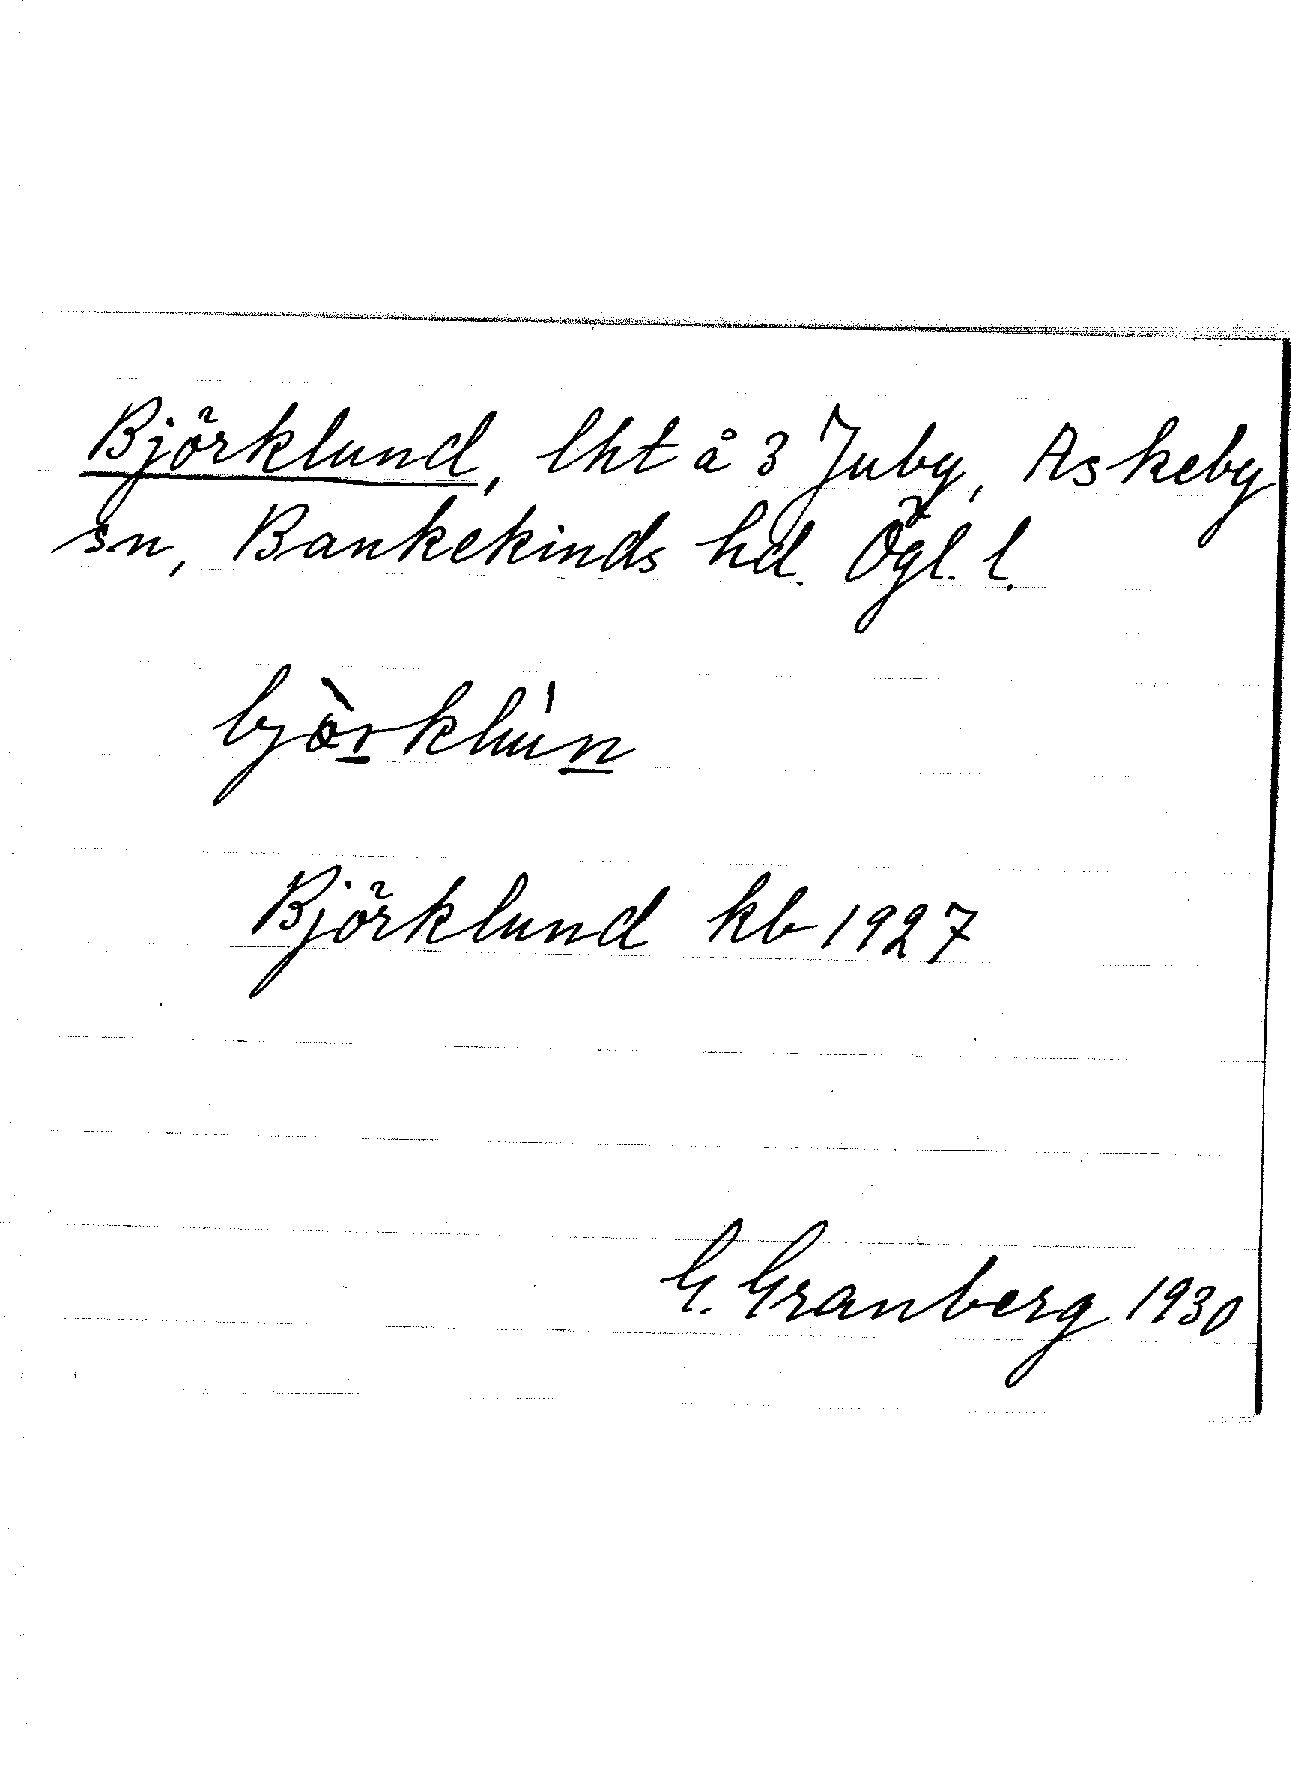 Björklund, lht å 3 Juby, Askeby
sn, Bankekinds hd. Ögl. l.
bjòrklún
Björklund kb 1927
G. Granberg 1930